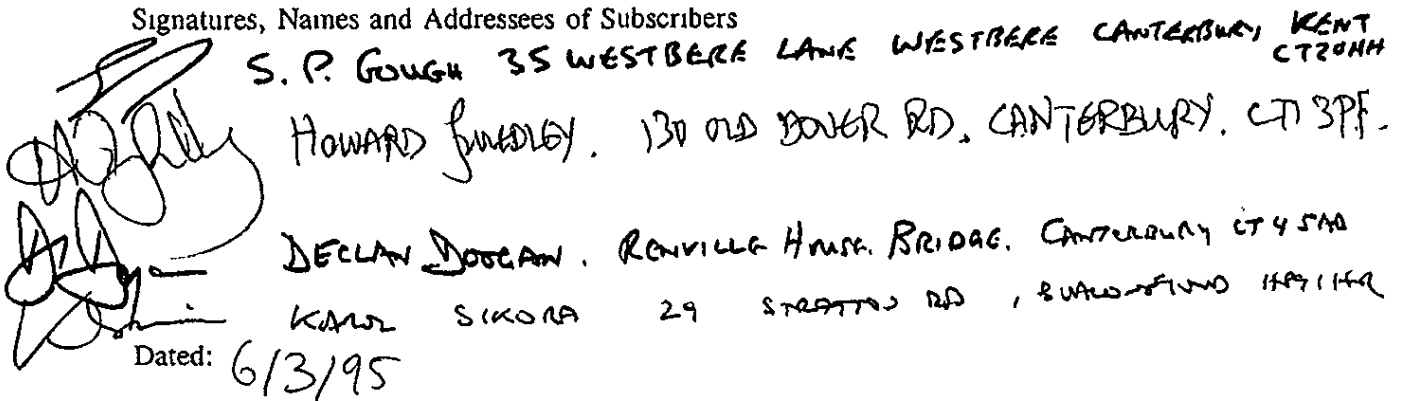 Signatures, Names and Addressees of Subscribers
S. P. GOUGH 35 WESTBERE LANE WESTBERE CANTERBURY KENT
CT2 0HH
HOWARD 130 OLD DOVER RD. CANTERBURY. CT1 3PF.
DECLAN DOOGAN. RENVILLE HOUSE. BRIDGE. CANTERBURY CT4 5AD
KAROL SIKORA 29 STRATTON RD,
Dated: 6/3/95